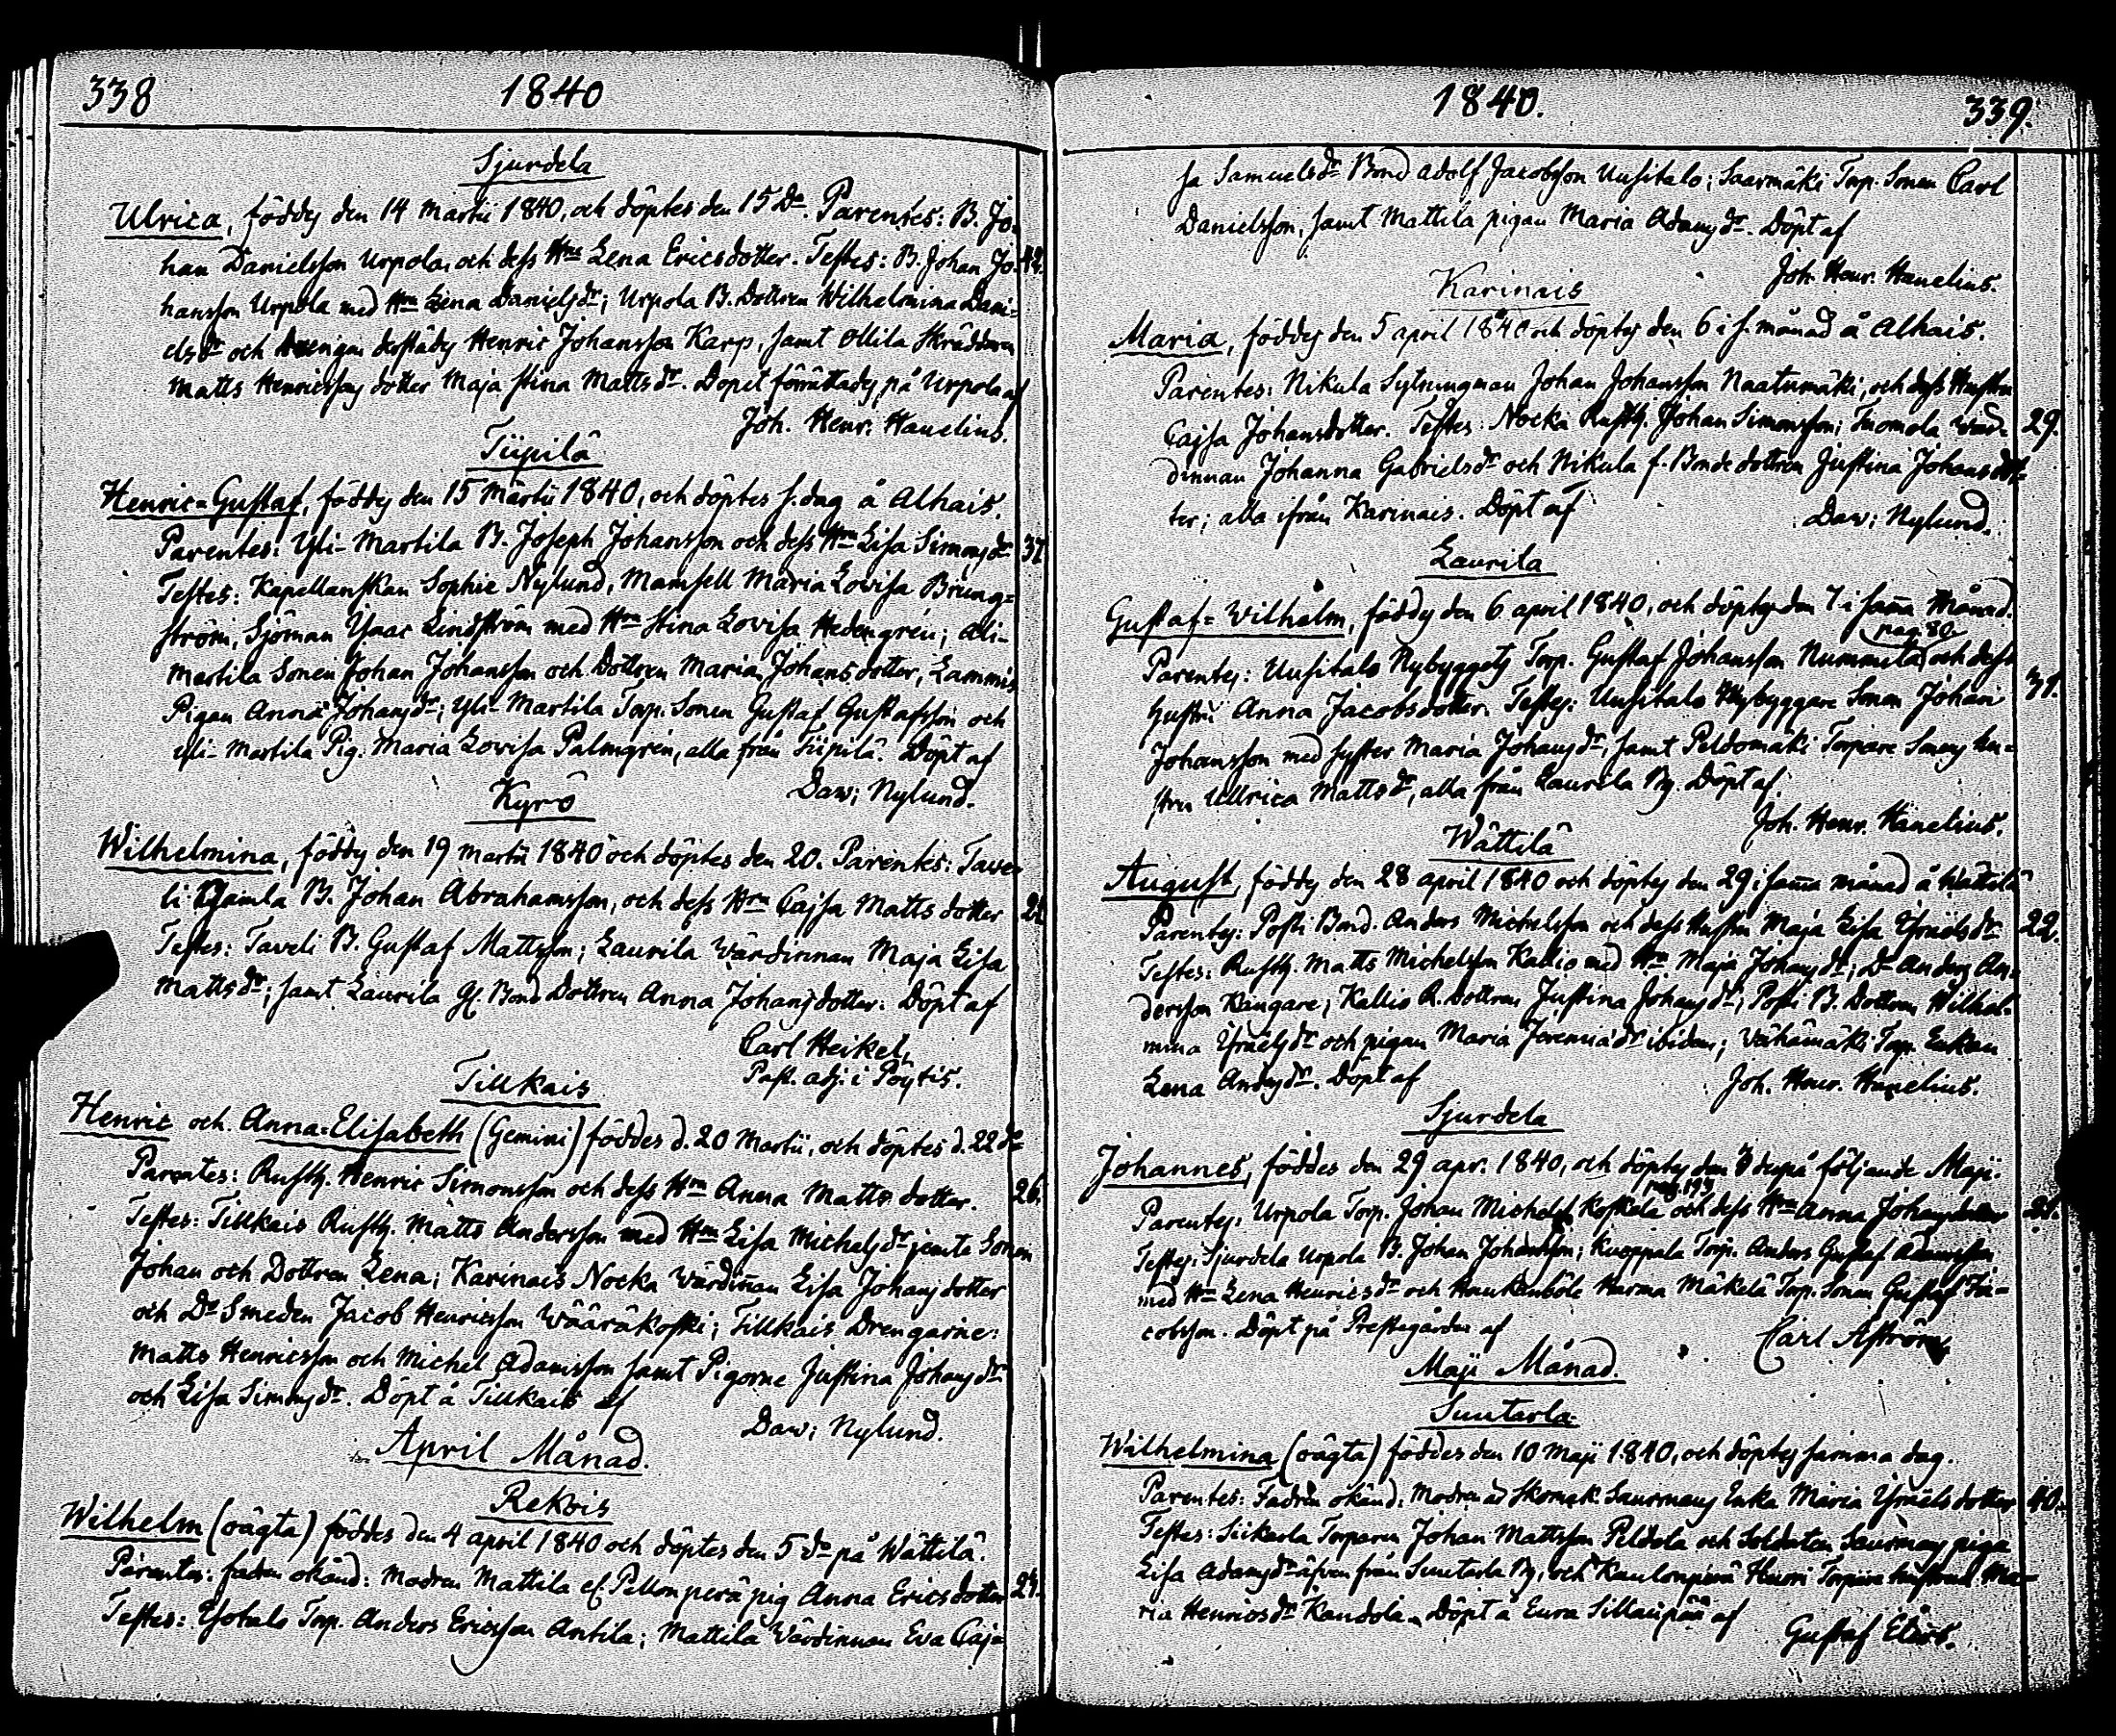 338 1840
Sjurdela
Ulrica, föddes den 14 Martii 1840, och döptes den 15 Do. Parentes: B. Jo-
han Danielsson Urpola, och dess Hru Lena Ericsdotter. Testes: B. Johan Jo- 42.
hansson Urpola med Hru Lena Danielsdr; Urpola B. Dottren Wilhelmina Dani-
elsdr och drengen derstädes Henric Johansson Karp, samt Ollila Skräddaren
Matts Henricssons dotter Maja Stina Mattsdr. Dopet förrättades på Urpola af
Joh. Henr. Hanelius.
Tiipilä
Henric=Gustaf, föddes den 15 Martii 1840, och döptes s. dag å Alhais.
Parentes: Yli-Martila B. Joseph Johansson och dess Hru Lisa Simonsdr 37
Testes: Kapellanskan Sophie Nylund, Mamsell Maria Lovisa Brung=
ström, Sjöman Isaac Lindström med Hru Stina Lovisa Hedengrén; Ali-
Martila Sonen Johan Johansson och Dottren Maria Johansdotter, Lammis
Pigan Anna Johansdr; Yli-Martila Torp. Sonen Gustaf Gustafsson och
Yli-Martila Pig. Maria Lovisa Palmgrén, alla från Tiipilä. Döpt af
Daw: Nylund.
Kyrö
Wilhelmina, föddes den 19 Martii 1840 och döptes den 20. Parentes: Tawe-
li Gamla B. Johan Abrahamsson, och dess Hru Cajsa Matts dotter 21
Testes: Taveli B. Gustaf Mattsson; Laurila Wärdinnan Maja Lisa
Mattsdr; samt Laurila Gl. Bond Dottren Anna Johansdotter. Döpt af
Carl Heikel,
Past. adj. i Pöytis.
Tillkais
Henric och Anna=Elisabeth (Gemini) föddes d. 20 Martii, och döptes d. 22 do
Parentes: Rusth. Henric Simonsson och dess Hru Anna Matts dotter. 26.
Testes: Tillkais Rusth. Matts Andersson med Hru Lisa Michelsdr jemte Sonen
Johan och Dottren Lena; Karinais Nocka Wärdinnan Lisa Johansdotter
och Do Smeden Jacob Henricsson Wääräkoski; Tillkais Drengarne:
Matts Henricsson och Michel Adamsson samt Pigorne Justina Johansdr
och Lisa Simonsdr. Döpt å Tillkais af
Daw: Nylund.
April Månad.
Rekois
Wilhelm (oägta) föddes den 4 april 1840 och döptes den 5 do på Wättilä.
Parentes: fadren okänd: Modren Mattila el. Pellonperä pig Anna Ericsdotter 24.
Testes: Isotalo Torp. Anders Ericsson Antila; Mattila Wärdinnan Eva Caj=
1840. 339.
sa Samuelsdr Bond Adolf Jacobsson Uusitalo; Saarmäki Torp. Sonen Carl
Danielsson, samt Mattila pigan Maria Adamsdr. Döpt af
Joh. Henr. Hanelius.
Karinais
Maria, föddes den 5 april 1840 och döptes den 6 i s. månad å Alhais.
Parentes: Nikula Sytningman Johan Johansson Naatumäki, och dess Hustru
Cajsa Johansdotter. Testes: Nocka Rusth. Johan Simonsson; Tuomola Wär= 29.
dinnan Johanna Gabrielsdr och Nikula f. Bonde dottren Justina Johansdot=
ter; alla ifrån Karinais. Döpt af
Daw: Nylund.
Laurila
Gustaf=Wilhelm, föddes den 6 april 1840, och döptes den 7 i sama Månad.
pag. 80.
Parentes: Uusitalo Nybyggets Torp. Gustaf Johansson Nummila och dess 31.
Hustru Anna Jacobsdotter. Testes: Uusitalo Nybyggare Sonen Johan
Johansson med syster Maria Johansdr, samt Peldomäki Torpare Sonens hu=
stru Ullrica Mattsdr, alla från Laurila By. Döpt af
Joh. Henr. Hanelius.
Wättilä
August, föddes den 28 april 1840 och döptes den 29 i sama månad å Wättilä
Parentes: Posti Bond. Anders Michelsson och dess Hustru Maja Lisa Isräelsdr 22.
Testes: Rusth. Matts Michelsson Kallio med Hru Maja Johansdr; Do Anders An=
dersson Kangare; Kallio R. dottren Justina Johansdr; Posti B. Dottren Wilhel-
mina Isräelsdr och pigan Maria Jeremiædr ibidem; Wähämäki Torp. Enkan
Lena Andersdr. Döpt af
Joh. Henr. Hanelius.
Sjurdela
Johannes, föddes den 29 apr. 1840, och döptes den 3 derpå följande Maji.
Parentes: Urpola Torp. Johan Michelss. Koskela och dess Hru Anna Johansdotter
Testes: Sjurdela Urpola B. Johan Johansson; Kuoppala Torp. Anders Gustaf
med Hru Lena Henricsdr och Haukanböle Harma Mäkelä Torp. Sonen Gustaf Ja=
cobsson. Döpt på Prestegården af
Carl Aström
Maji Månad.
Suutarla
Wilhelmina (oägta) föddes den 10 Maji 1840, och döptes samma dag.
Parentes: Fadren okänd: Modren är Skomak. Saurmans Enka Maria Isräels dotter 40.
Testes: Siikarla Torparen Johan Mattsson Peldola och Soldaten Saurmans piga
Lisa Adamsdr äfven från Suutarla By, och Kaulonperä Huori Torpare hustrun Ma=
ria Henricsdr Kandola. Döpt å Eura Sillanpää af
Gustaf